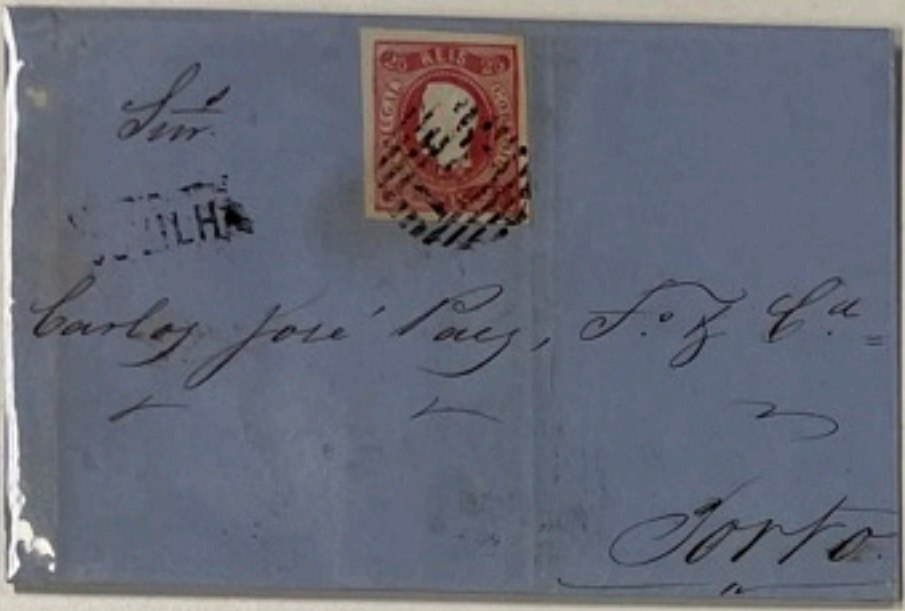 25 REIS 25
Snr.s
Carlos José Paes, F.o & C.a =
Porto.